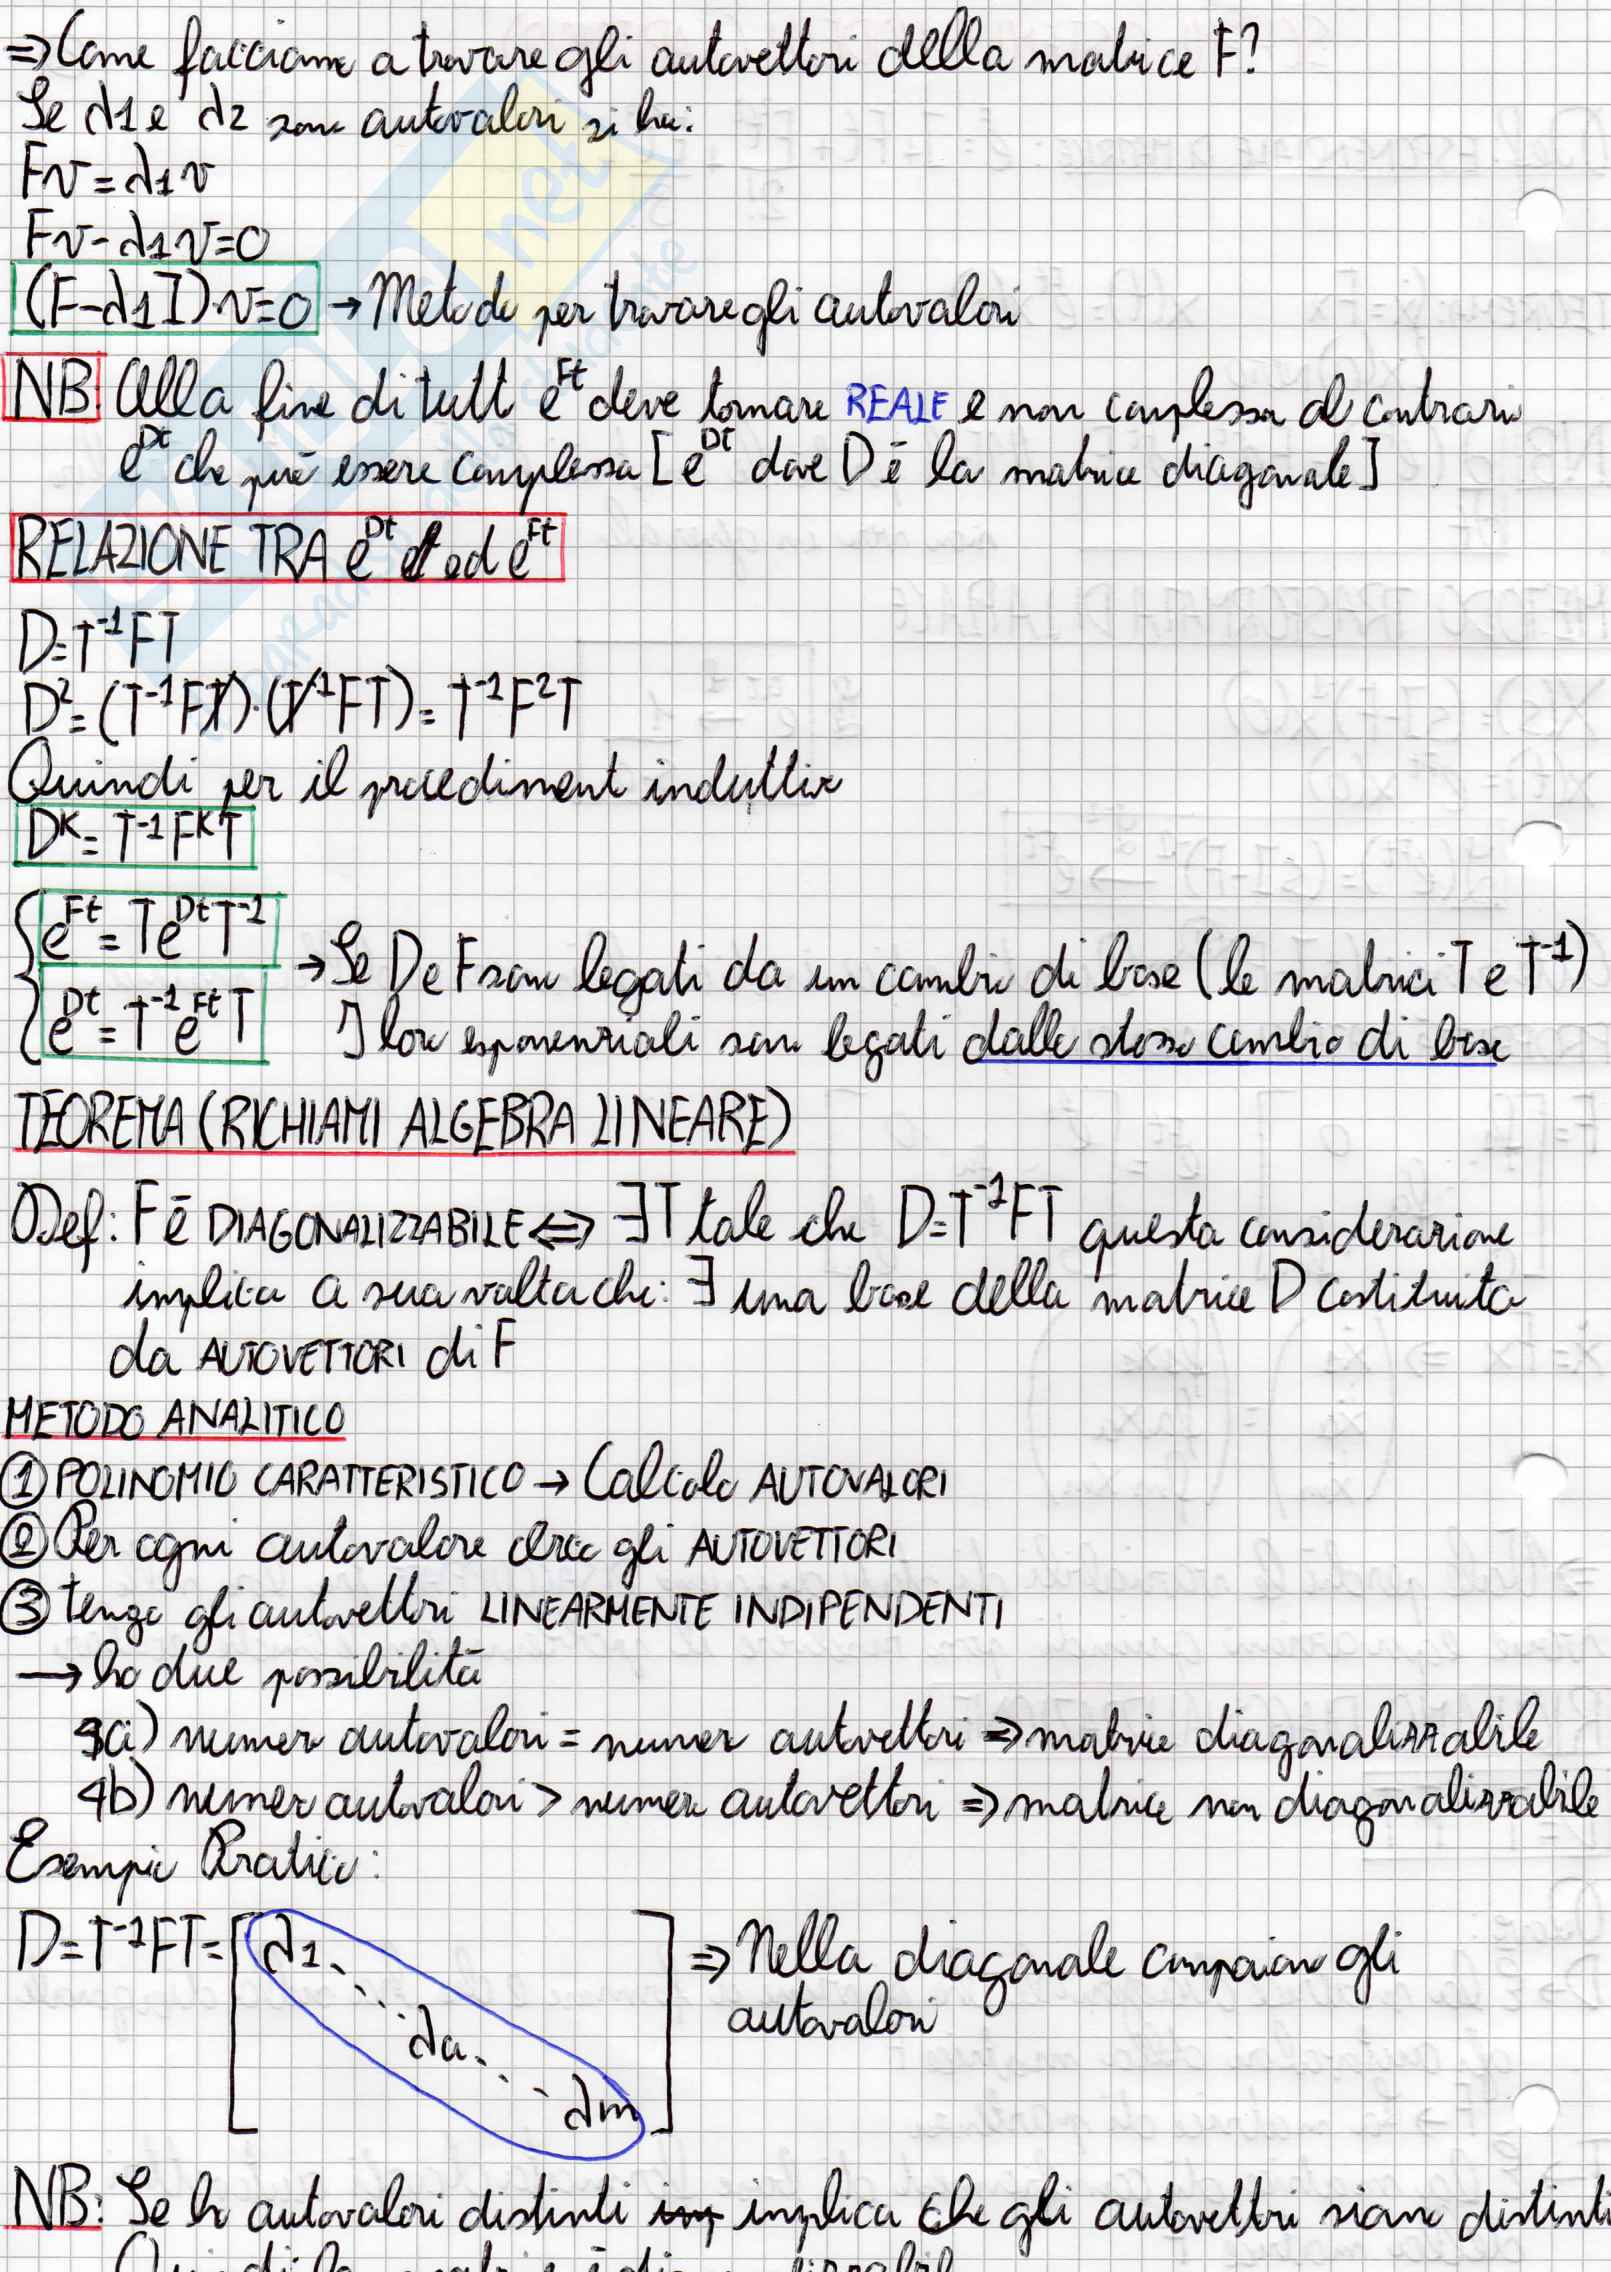 ⇒ Come facciamo a trovare gli autovettori della matrice F?
Se λ1 e λ2 sono autovalori si ha:
Fv = λ1 v
Fv - λ1 v = 0
(F-λ1 I)·v = 0 → Metodo per trovare gli autovalori
NB: Alla fine di tutto e^Ft deve tornare REALE e non complessa al contrario
e^Dt che può essere complessa [e^Dt dove D è la matrice diagonale]
RELAZIONE TRA e^Dt ed e^Ft
D = T^-1 F T
D^2 = (T^-1 F T)·(T^-1 F T) = T^-1 F^2 T
Quindi per il procedimento induttivo
D^K = T^-1 F^K T
e^Ft = T e^Dt T^-1
e^Dt = T^-1 e^Ft T
→ Se D e F sono legati da un cambio di base (le matrici T e T^-1)
I loro esponenziali sono legati dallo stesso cambio di base
TEOREMA (RICHIAMI ALGEBRA LINEARE)
Def: F è DIAGONALIZZABILE ⇔ ∃ T tale che D = T^-1 F T questa considerazione
implica a sua volta che: ∃ una base della matrice D costituita
da AUTOVETTORI di F
METODO ANALITICO
① POLINOMIO CARATTERISTICO → Calcolo AUTOVALORI
② Per ogni autovalore cerco gli AUTOVETTORI
③ Tengo gli autovettori LINEARMENTE INDIPENDENTI
→ ho due possibilità
4a) numero autovalori = numero autovettori ⇒ matrice diagonalizzabile
4b) numero autovalori > numero autovettori ⇒ matrice non diagonalizzabile
Esempio Pratico:
D = T^-1 F T = [ λ1 ... λa ... λm ] ⇒ Nella diagonale compaiono gli
autovalori
NB: Se ho autovalori distinti implica che gli autovettori siano distinti
Quindi la matrice è diagonalizzabile